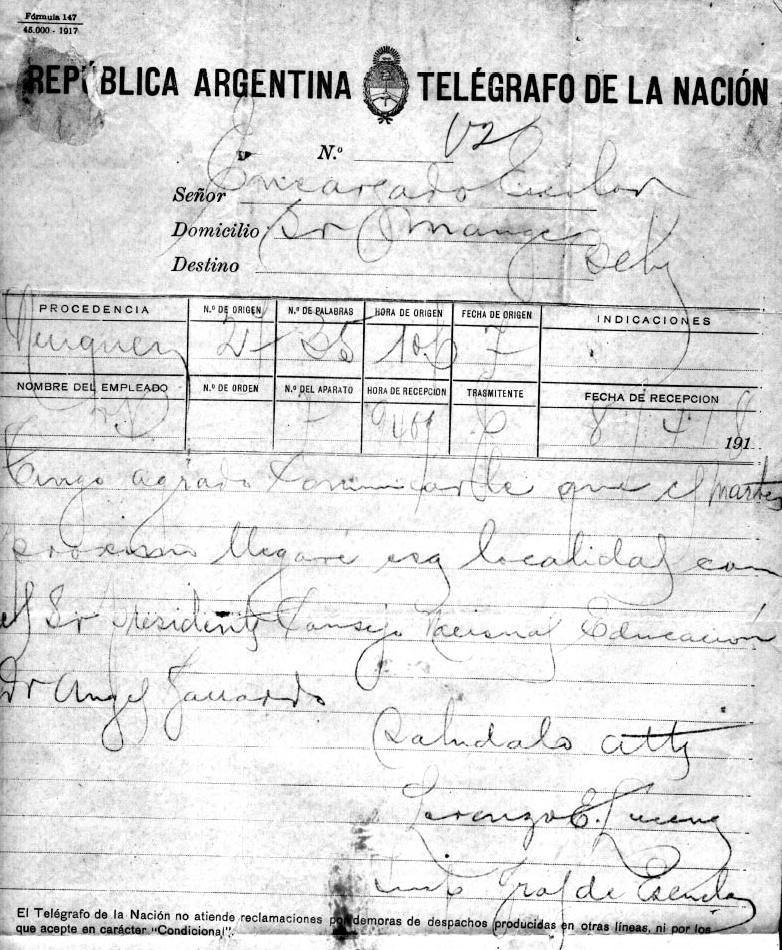 Fórmula 147
45.000 - 1917
REPÚBLICA ARGENTINA TELÉGRAFO DE LA NACIÓN
N.º 12
Señor Encargado Escolar
Domicilio Sr
Destino
PROCEDENCIA N.º DE ORIGEN N.º DE PALABRAS HORA DE ORIGEN FECHA DE ORIGEN INDICACIONES
Neuquen 27 35 7
NOMBRE DEL EMPLEADO N.º DE ORDEN N.º DEL APARATO HORA DE RECEPCIÓN TRASMITENTE FECHA DE RECEPCION
8 4 1918
Tengo agrado comunicarle que el martes
próximo llegaré esa localidad con
el Sr Presidente Consejo Nacional Educación
Dr Angel Gallardo
Saludalo atte
Lorenzo E. Lucena
Insp Gral de Escuelas
El Telégrafo de la Nación no atiende reclamaciones por demoras de despachos producidas en otras líneas, ni por los
que acepte en carácter "Condicional".